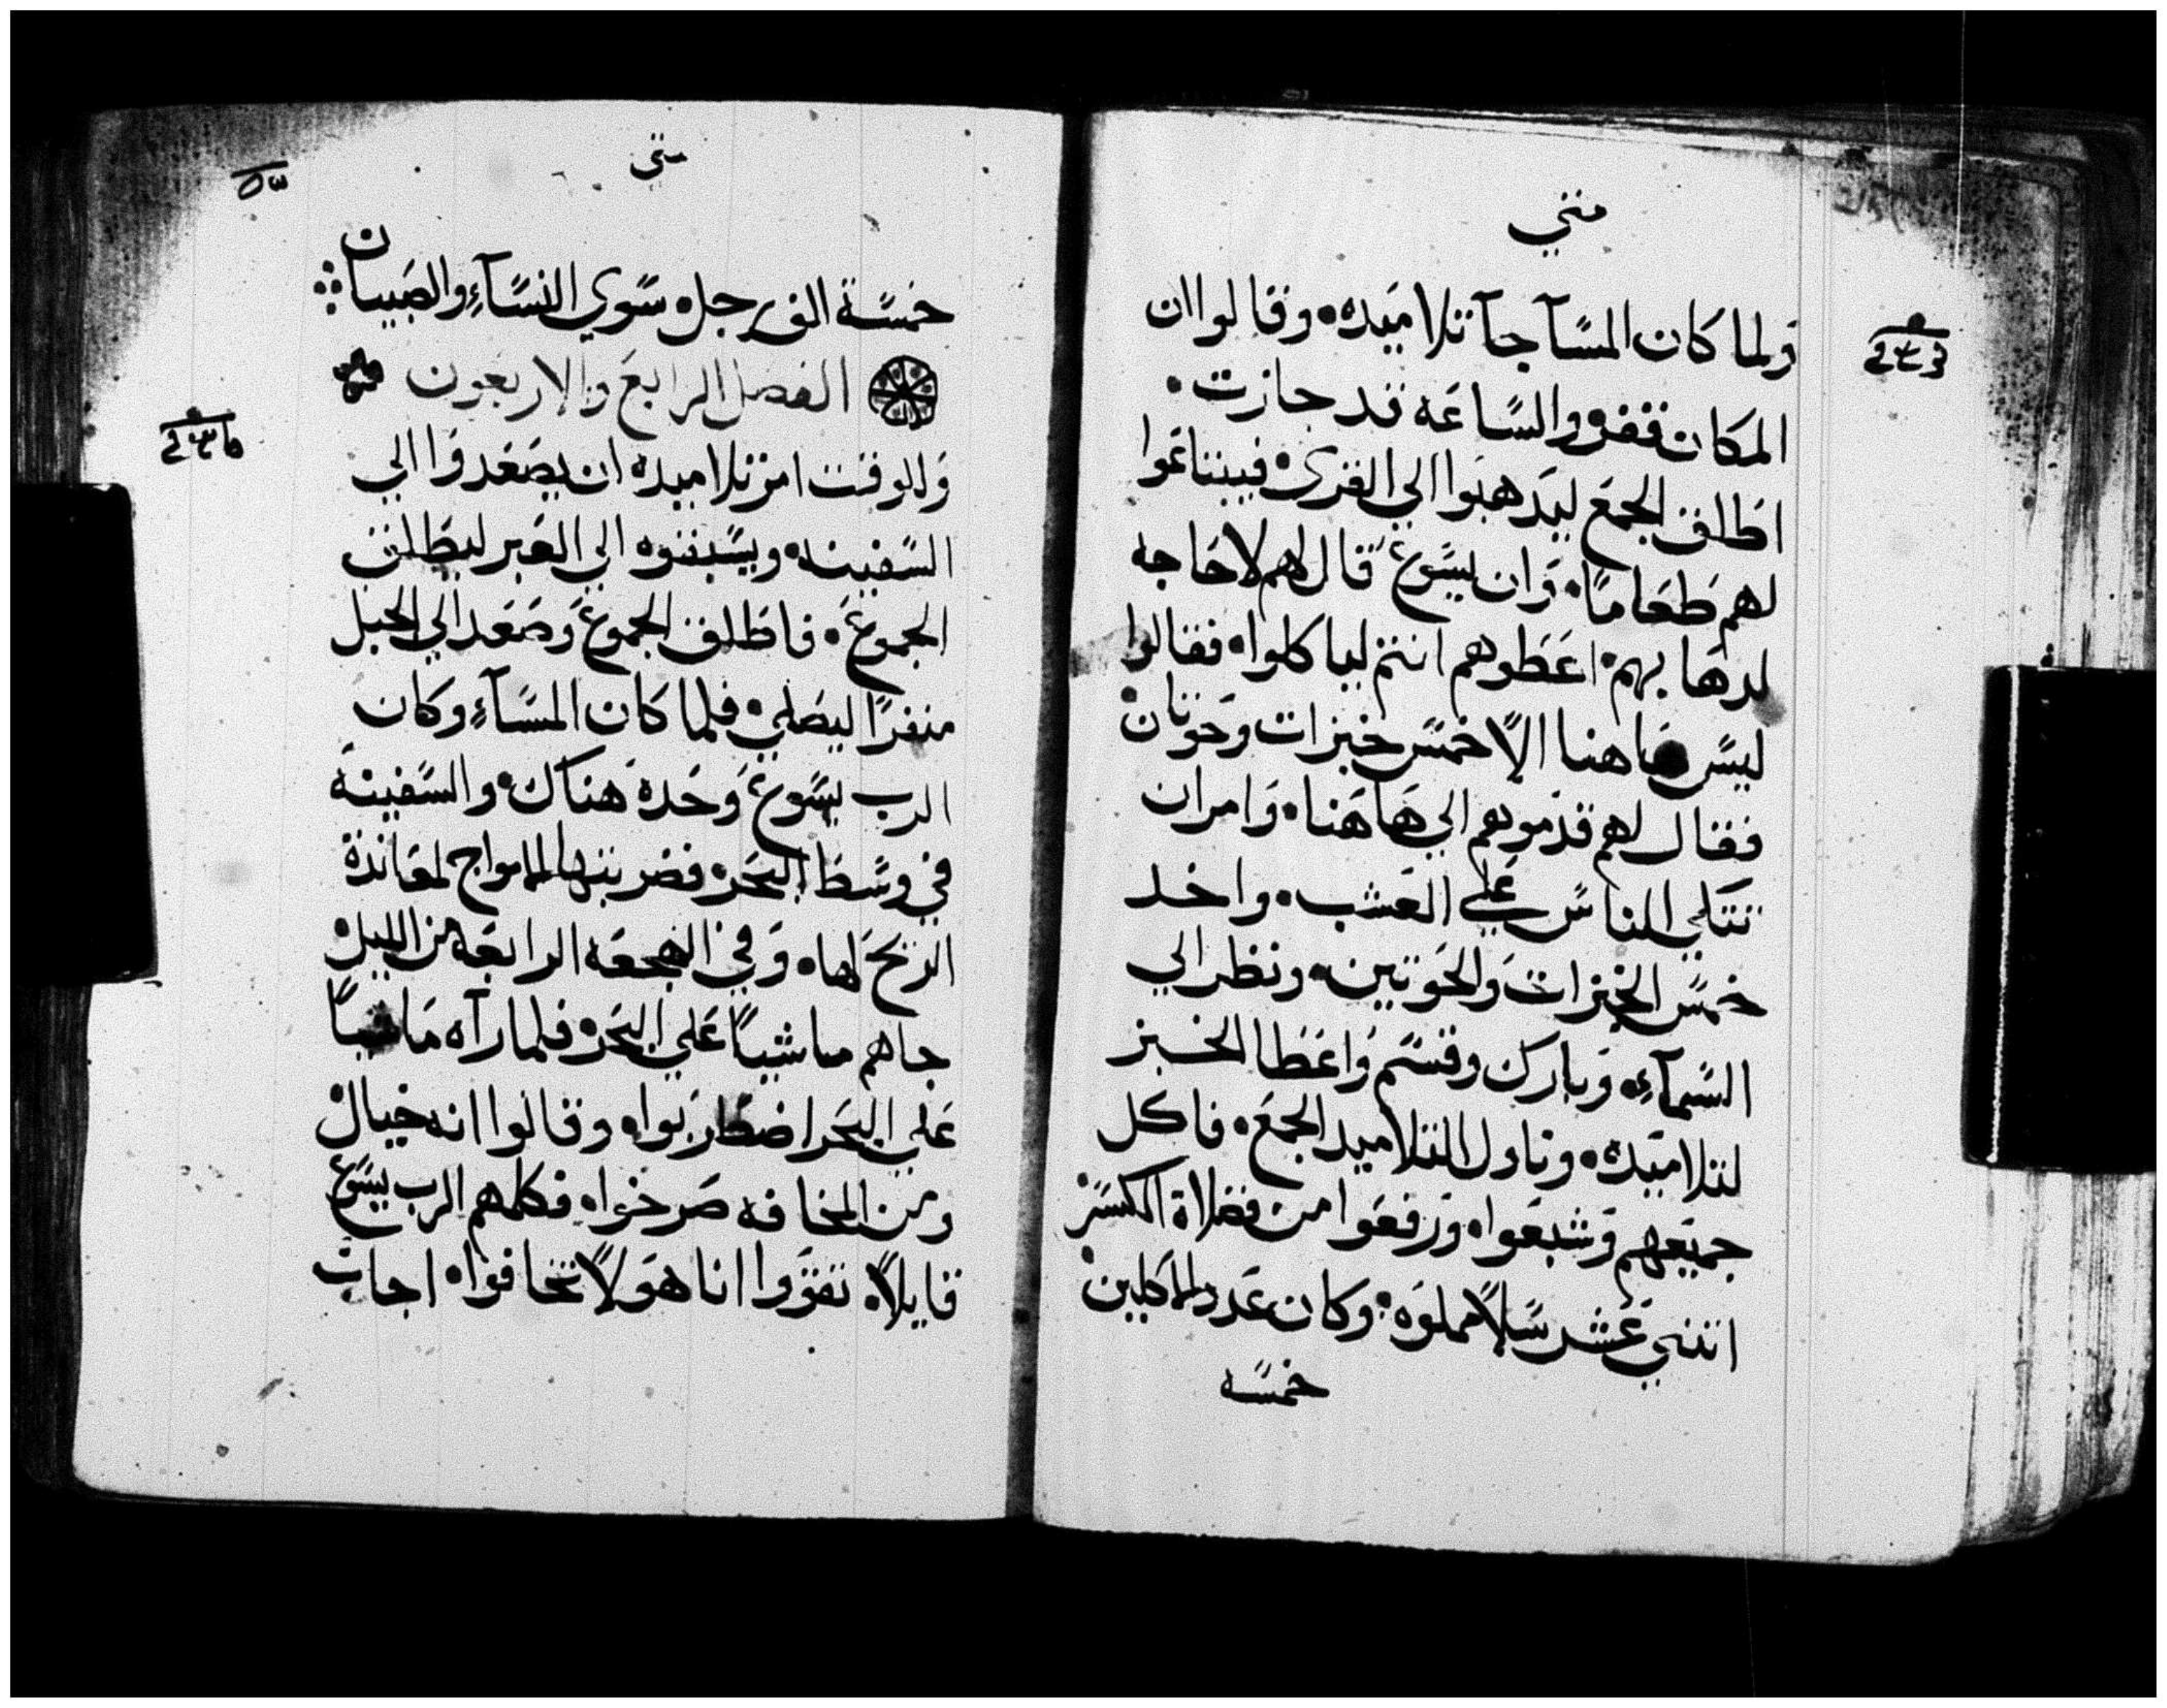 متي
ولما كان المسآ جآ تلاميده وقالوا ان
المكان قفر والساعه قد جازت
اطلق الجمع ليدهبوا الي القري فيبتاعوا
لهم طعاما وان يسوع قال لهم لا حاجه
لدهابهم اعطوهم انتم لياكلوا فقالوا
ليس هاهنا الا خمس خبزات وحوتان
فقال لهم قدموهم الي هاهنا وامر ان
تتكي الناس علي العشب واخد
خمس الخبزات والحوتين ونظر الي
السمآء وبارك وقسم واعطا الخبز
لتلاميده وناول التلاميد الجمع فاكل
جميعهم وشبعوا ورفعوا من فضلاة الكسر
اتني عشر سلا مملوه وكان عدد الاكلين
خمسه
متي
خمسة الف رجل سوي النسآء والصبيان
الفصل الرابع والاربعون
وللوقت امر تلاميده ان يصعدوا الي
السفينه ويسبقوه الي العبر ليطلق
الجموع فاطلق الجموع وصعد الي الجبل
منفردا ليصلي فلما كان المسآء وكان
الرب يسوع وحده هناك والسفينة
في وسط البحر فضربتها الامواج لمعاندة
الريح لها وفي الهجعه الرابعه من الليل
جاهم ماشيا علي البحر فلما رآه ماشيا
علي البحر اضطربوا وقالوا انه خيال
ومن المخافه صرخوا فكلمهم الرب يسوع
قايلا تقووا انا هو لا تخافوا اجاب